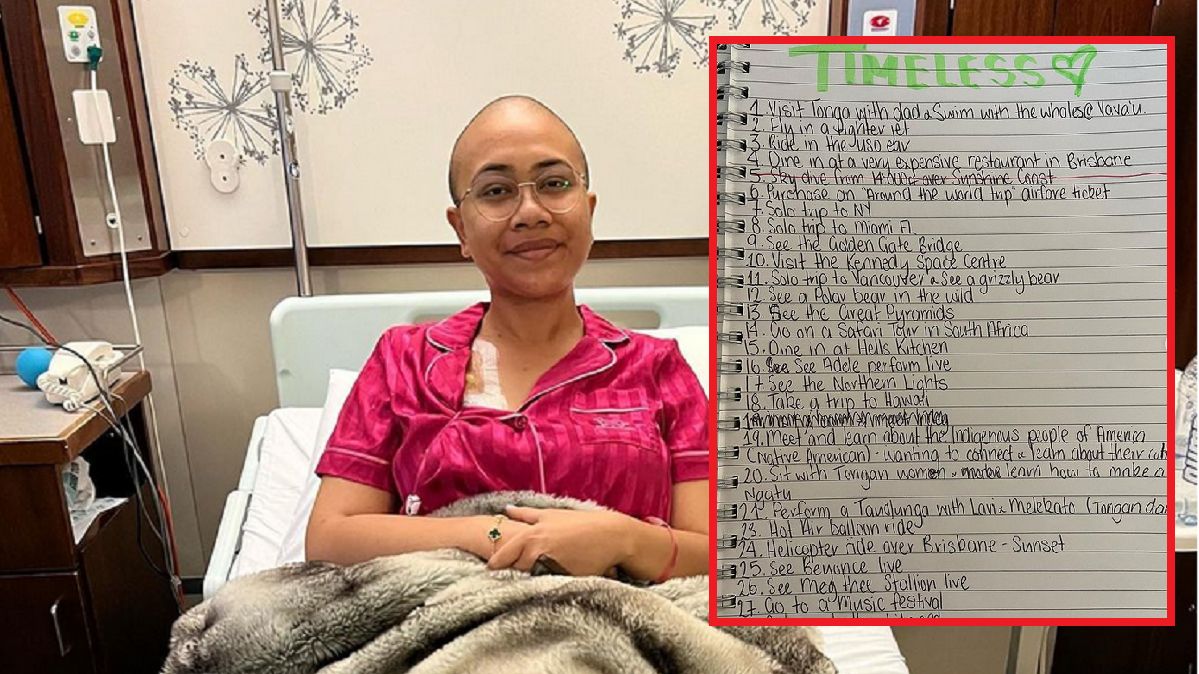 TIMELESS
1. Visit Tonga with dad & Swim with the whales@ Vava'u
2. Fly in a fighter jet
3. Ride in the
4. Dine in at a very expensive restaurant in Brisbane
5. Sky dive from over Sunshine Coast
6. Purchase an "Around the world trip" airfare ticket
7. Solo trip to NY
8. Solo trip to Miami Fl.
9. See the Golden Gate Bridge
10. Visit the Kennedy Space Centre
11. Solo trip to Vancouver & See a grizzly bear
12. See a Polar bear in the wild
13. See the Great Pyramids
14. Go on a Safari Tour in South Africa
15. Dine in at Hells Kitchen
16. See Adele perform live
17. See the Northern Lights
18. Take a trip to Hawaii
19. Meet and learn about the Indigenous people of America
(Native American) - wanting to connect & learn about their
20. Sit with Tongan women & learn how to make a
Ngatu
Perform a Tau'olunga with
23. Hot Air balloon ride
24. Helicopter ride over Brisbane - Sunset
25. See live
26. See Meg thee Stallion live
27. Go to a music festival